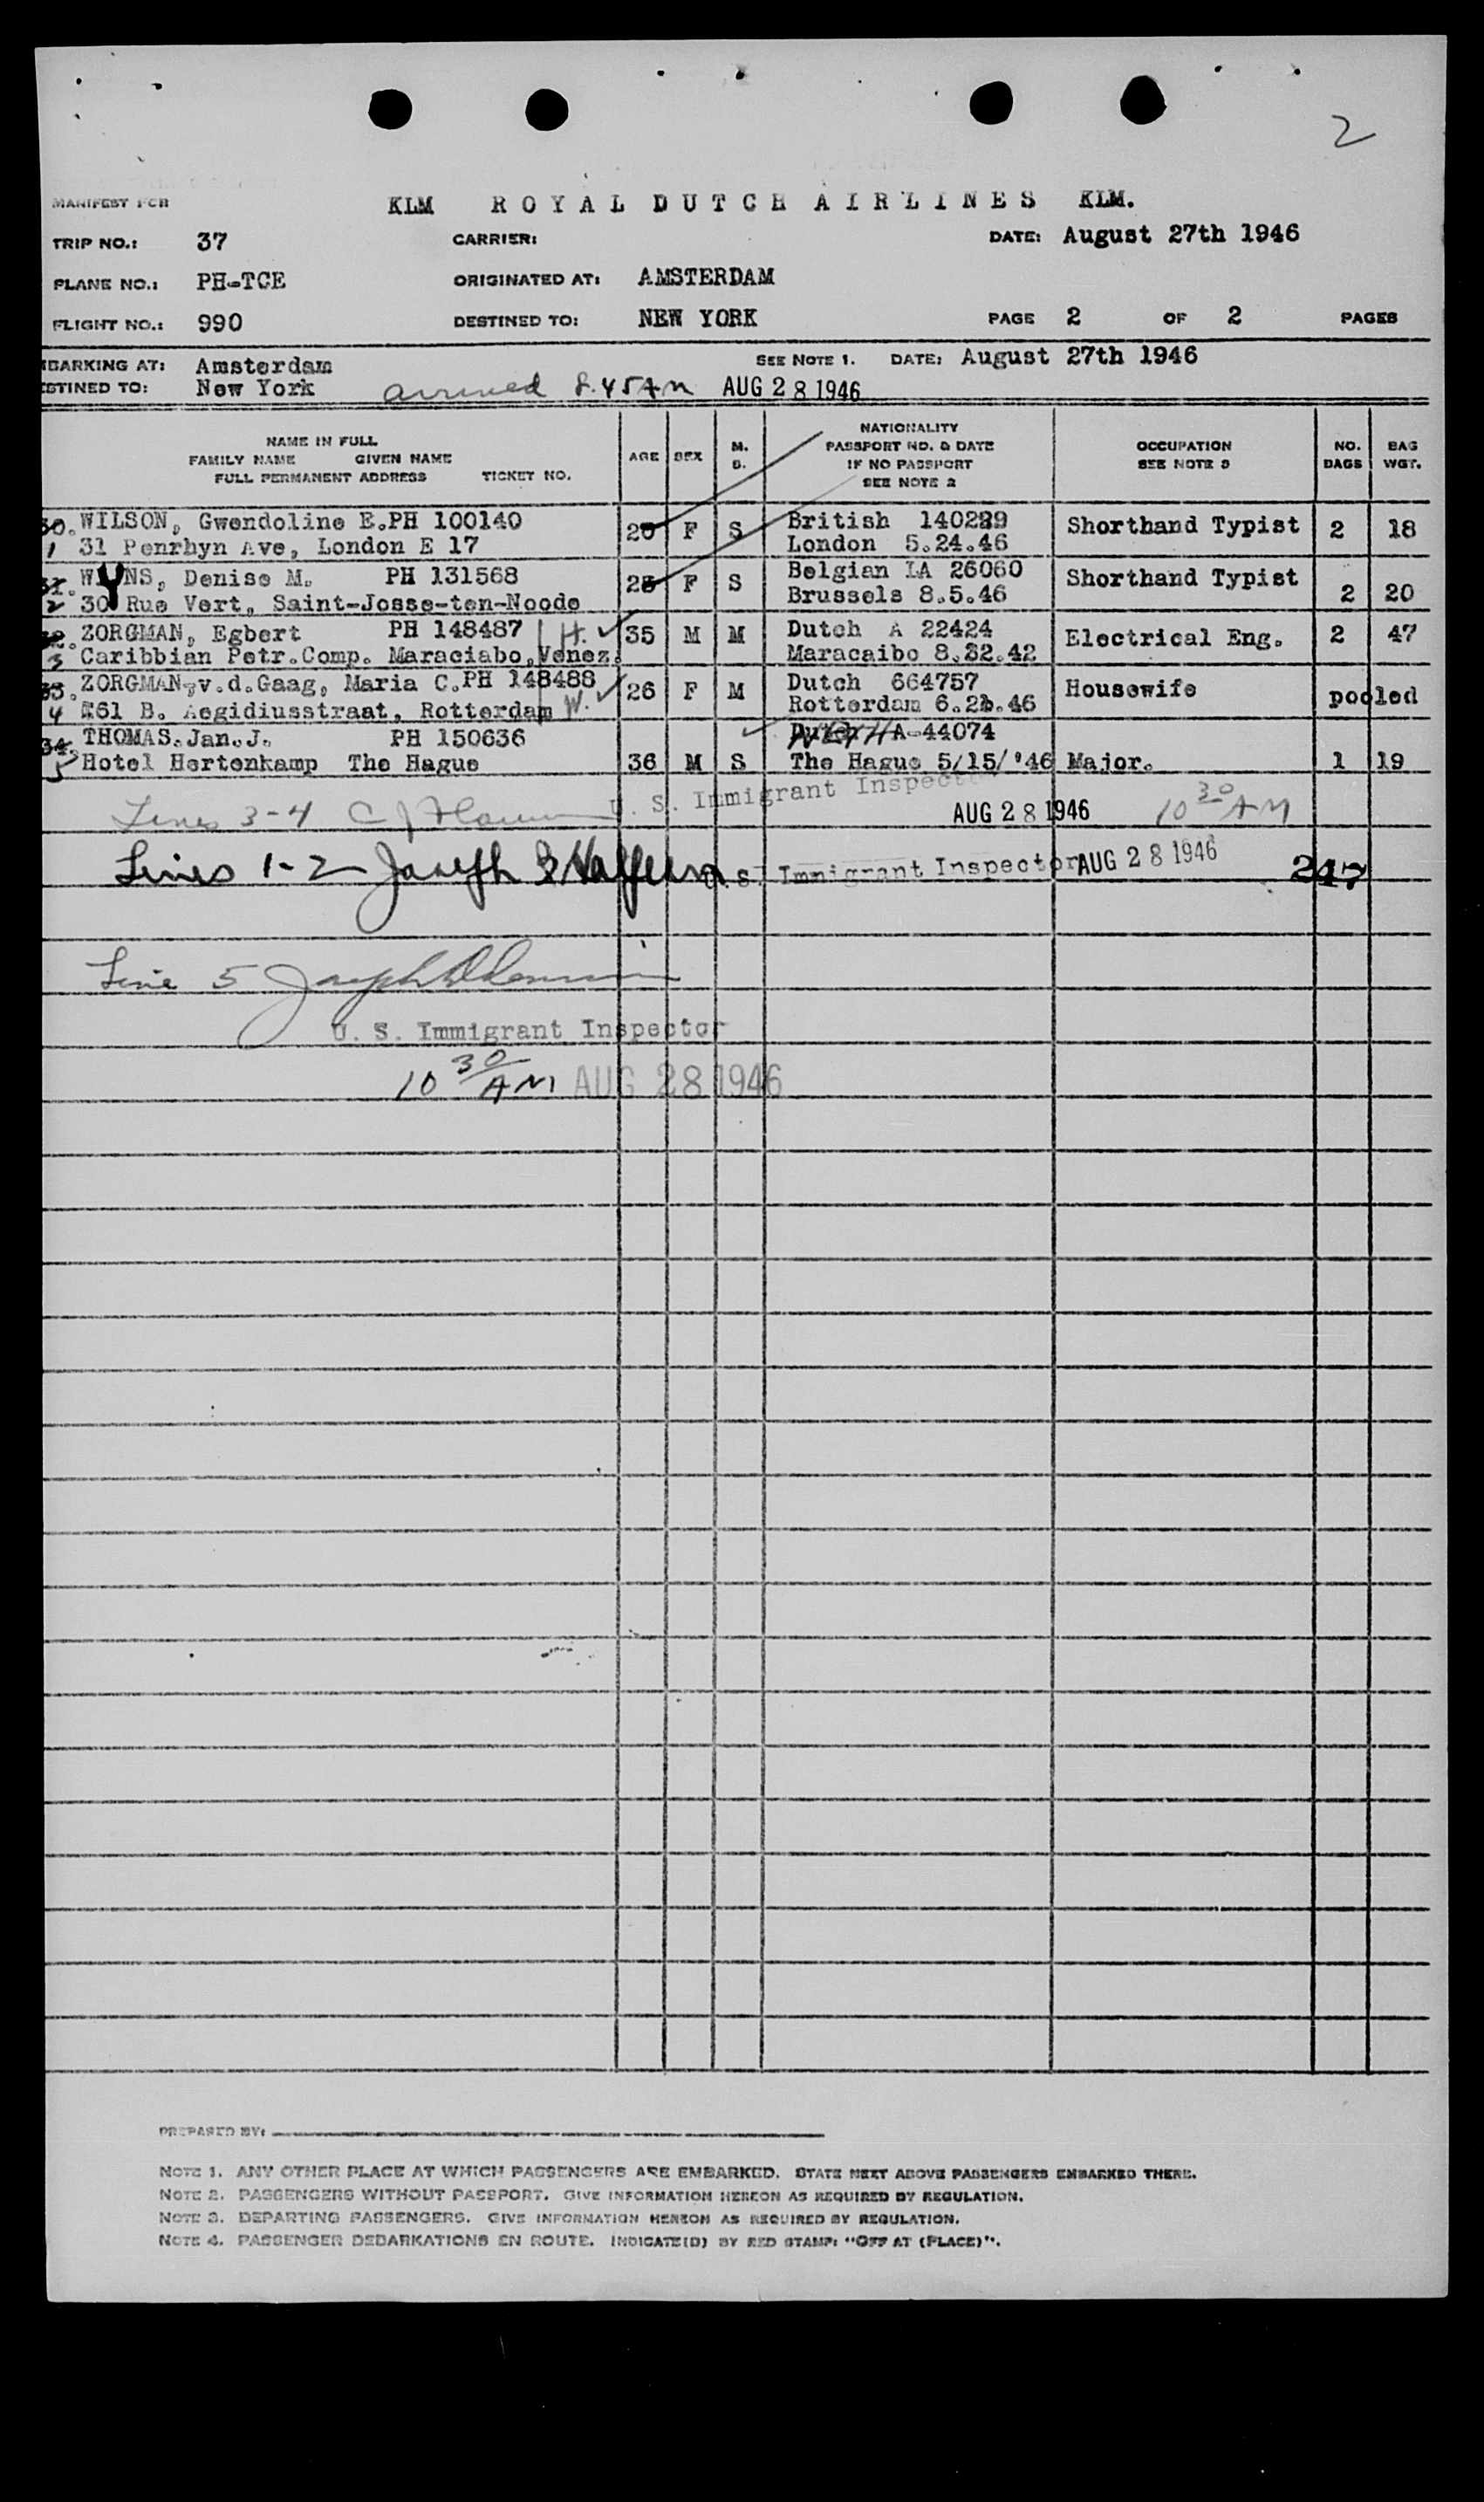 2
MANIFEST FOR KLM ROYAL DUTCH AIRLINES KLM.
TRIP NO.: 37 CARRIER: DATE: August 27th 1946
PLANE NO.: PH-TCE ORIGINATED AT: AMSTERDAM
FLIGHT NO.: 990 DESTINED TO: NEW YORK PAGE 2 OF 2 PAGES
BARKING AT: Amsterdam SEE NOTE 1. DATE: August 27th 1946
STINED TO: New York arrived 8.45 AM AUG 28 1946
NAME IN FULL
FAMILY NAME GIVEN NAME
FULL PERMANENT ADDRESS TICKET NO.
AGE SEX M. S.
NATIONALITY
PASSPORT NO. & DATE
IF NO PASSPORT
SEE NOTE 2
OCCUPATION
SEE NOTE 3
NO. BAGS
BAG WGT.
30. WILSON, Gwendoline E. PH 100140 F S British Shorthand Typist 2 18
1 31 Penrhyn Ave, London E 17 London 5.24.46
31. WYNS, Denise M. PH 131568 F S Belgian IA 26060 Shorthand Typist 2 20
2 30 Rue Vert, Saint-Josse-ten-Noode Brussels 8.5.46
32. ZORGMAN, Egbert PH 148487 H. 35 M M Dutch A 22424 Electrical Eng. 2 47
3 Caribbian Petr.Comp. Maraciabo, Venez. Maracaibo
33. ZORGMAN-v.d.Gaag, Maria C. PH 148488 W. 26 F M Dutch 664757 Housewife pooled
4 61 B. Aegidiusstraat, Rotterdam Rotterdam
34. THOMAS.Jan.J. PH 150636 NETH A-44074
5 Hotel Hortenkamp The Hague 36 M S The Hague 5/15/'46 Major. 1 19
Lines 3-4 U. S. Immigrant Inspector AUG 28 1946 10 30 AM
Lines 1-2 Joseph U. S. Immigrant Inspector AUG 28 1946 247
Line 5 Joseph
U. S. Immigrant Inspector
10 30 AM AUG 28 1946
PREPARED BY:
NOTE 1. ANY OTHER PLACE AT WHICH PASSENGERS ARE EMBARKED. STATE NEXT ABOVE PASSENGERS EMBARKED THERE.
NOTE 2. PASSENGERS WITHOUT PASSPORT. GIVE INFORMATION HEREON AS REQUIRED BY REGULATION.
NOTE 3. DEPARTING PASSENGERS. GIVE INFORMATION HEREON AS REQUIRED BY REGULATION.
NOTE 4. PASSENGER DEBARKATIONS EN ROUTE. INDICATE(D) BY RED STAMP: "OFF AT (PLACE)".